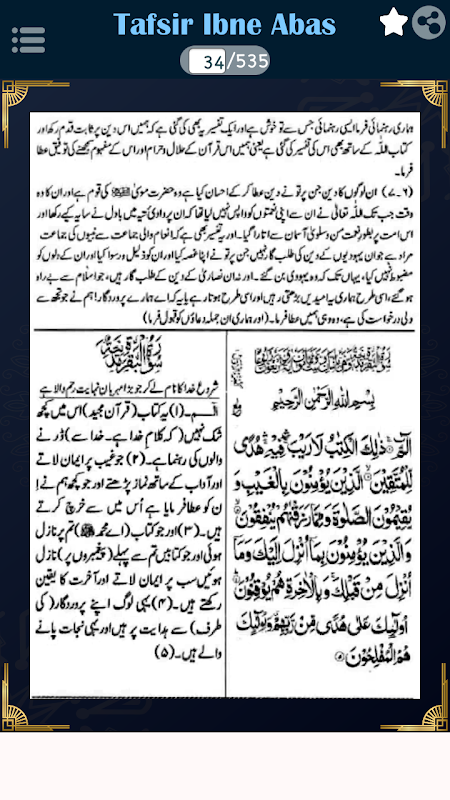 Tafsir Ibne Abas
34/535
ہماری رہنمائی فرما ایسی رہنمائی جس سے تو خوش ہے اور ایک تفسیر یہ بھی کی گئی ہے کہ ہمیں اس دین پر ثابت قدم رکھ اور
کتاب اللہ کے ساتھ بھی اس کی تفسیر کی گئی ہے یعنی ہمیں اس قرآن کے حلال و حرام اور اس کے مفہوم سمجھنے کی توفیق عطا
فرما۔
(۶-۷) ان لوگوں کا دین جن پر تو نے دین عطا کر کے احسان کیا ہے وہ حضرت موسیٰ ﷺ کی قوم ہے اور ان کا وہ
وقت جب تک اللہ تعالٰی نے ان سے اپنی نعمتوں کو واپس نہیں لیا تھا کہ ان پر وادی تیہ میں بادل نے سایہ کیے رکھا اور
اس امت پر بطور نعمت من و سلویٰ آسمان سے اتارا گیا۔ اور یہ تفسیر بھی ہے کہ انعام والی جماعت سے نبیوں کی جماعت
مراد ہے جو ان یہودیوں کے دین کی طلب گار نہیں جن پر تو نے اپنا غصہ کیا اور ان کو ذلیل و رسوا کیا اور ان کے دلوں کو
مضبوط نہیں کیا، یہاں تک کہ وہ یہودی بن گئے۔ اور نہ ان نصاریٰ کے دین کے طلب گار ہیں، جو اسلام سے بے راہ
ہو گئے، اسی طرح ہماری یہ امیدیں بڑھتی رہیں اور اسی طرح ہوتا رہے یا یہ کہ اے ہمارے پروردگار! ہم نے جو تجھ سے
دلی درخواست کی ہے، وہ وہی ہمیں عطا فرما۔ (اور ہماری ان جملہ دعاؤں کو قبول فرما)
بِسْمِ اللّٰهِ الرَّحْمٰنِ الرَّحِيْمِ
الٓمّٓ ۚ ذٰلِكَ الْكِتٰبُ لَا رَيْبَ ۛ فِيْهِ ۛ هُدًى
لِّلْمُتَّقِيْنَ ۙ الَّذِيْنَ يُؤْمِنُوْنَ بِالْغَيْبِ وَ
يُقِيْمُوْنَ الصَّلٰوةَ وَمِمَّا رَزَقْنٰهُمْ يُنْفِقُوْنَ ۙ
وَالَّذِيْنَ يُؤْمِنُوْنَ بِمَآ اُنْزِلَ اِلَيْكَ وَمَآ
اُنْزِلَ مِنْ قَبْلِكَ ۚ وَبِالْاٰخِرَةِ هُمْ يُوْقِنُوْنَ ۗ
اُولٰٓئِكَ عَلٰى هُدًى مِّنْ رَّبِّهِمْ ۗ وَاُولٰٓئِكَ
هُمُ الْمُفْلِحُوْنَ
شروع خدا کا نام لے کر جو بڑا مہربان نہایت رحم والا ہے
الٓــمّٓ۔ (۱) یہ کتاب (قرآن مجید) اس میں کچھ
شک نہیں (کہ کلام خدا ہے۔ خدا سے) ڈرنے
والوں کی رہنما ہے۔ (۲) جو غیب پر ایمان لاتے
اور آداب کے ساتھ نماز پڑھتے اور جو کچھ ہم نے
ان کو عطا فرمایا ہے اُس میں سے خرچ کرتے
ہیں۔ (۳) اور جو کتاب (اے محمد ﷺ) تم پر نازل
ہوئی اور جو کتابیں تم سے پہلے (پیغمبروں پر) نازل
ہوئیں سب پر ایمان لاتے اور آخرت کا یقین
رکھتے ہیں۔ (۴) یہی لوگ اپنے پروردگار (کی
طرف) سے ہدایت پر ہیں اور یہی نجات پانے
والے ہیں۔ (۵)